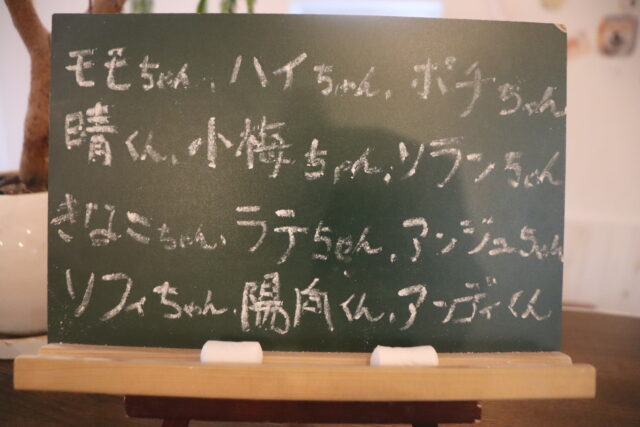 モモちゃん、ハイちゃん、ポチちゃん
晴くん、小梅ちゃん、ソランちゃん
きなこちゃん、ラテちゃん、アンジュちゃん
ソフィちゃん、陽向くん、アンディくん